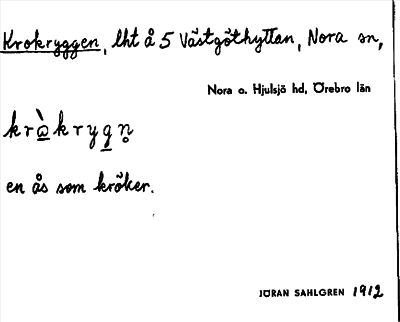 Krokryggen, lht å 5 Västgöthyttan, Nora sn,
Nora o. Hjulsjö hd, Örebro län
krὼkrygn̥
en ås som kröker.
JÖRAN SAHLGREN 1912